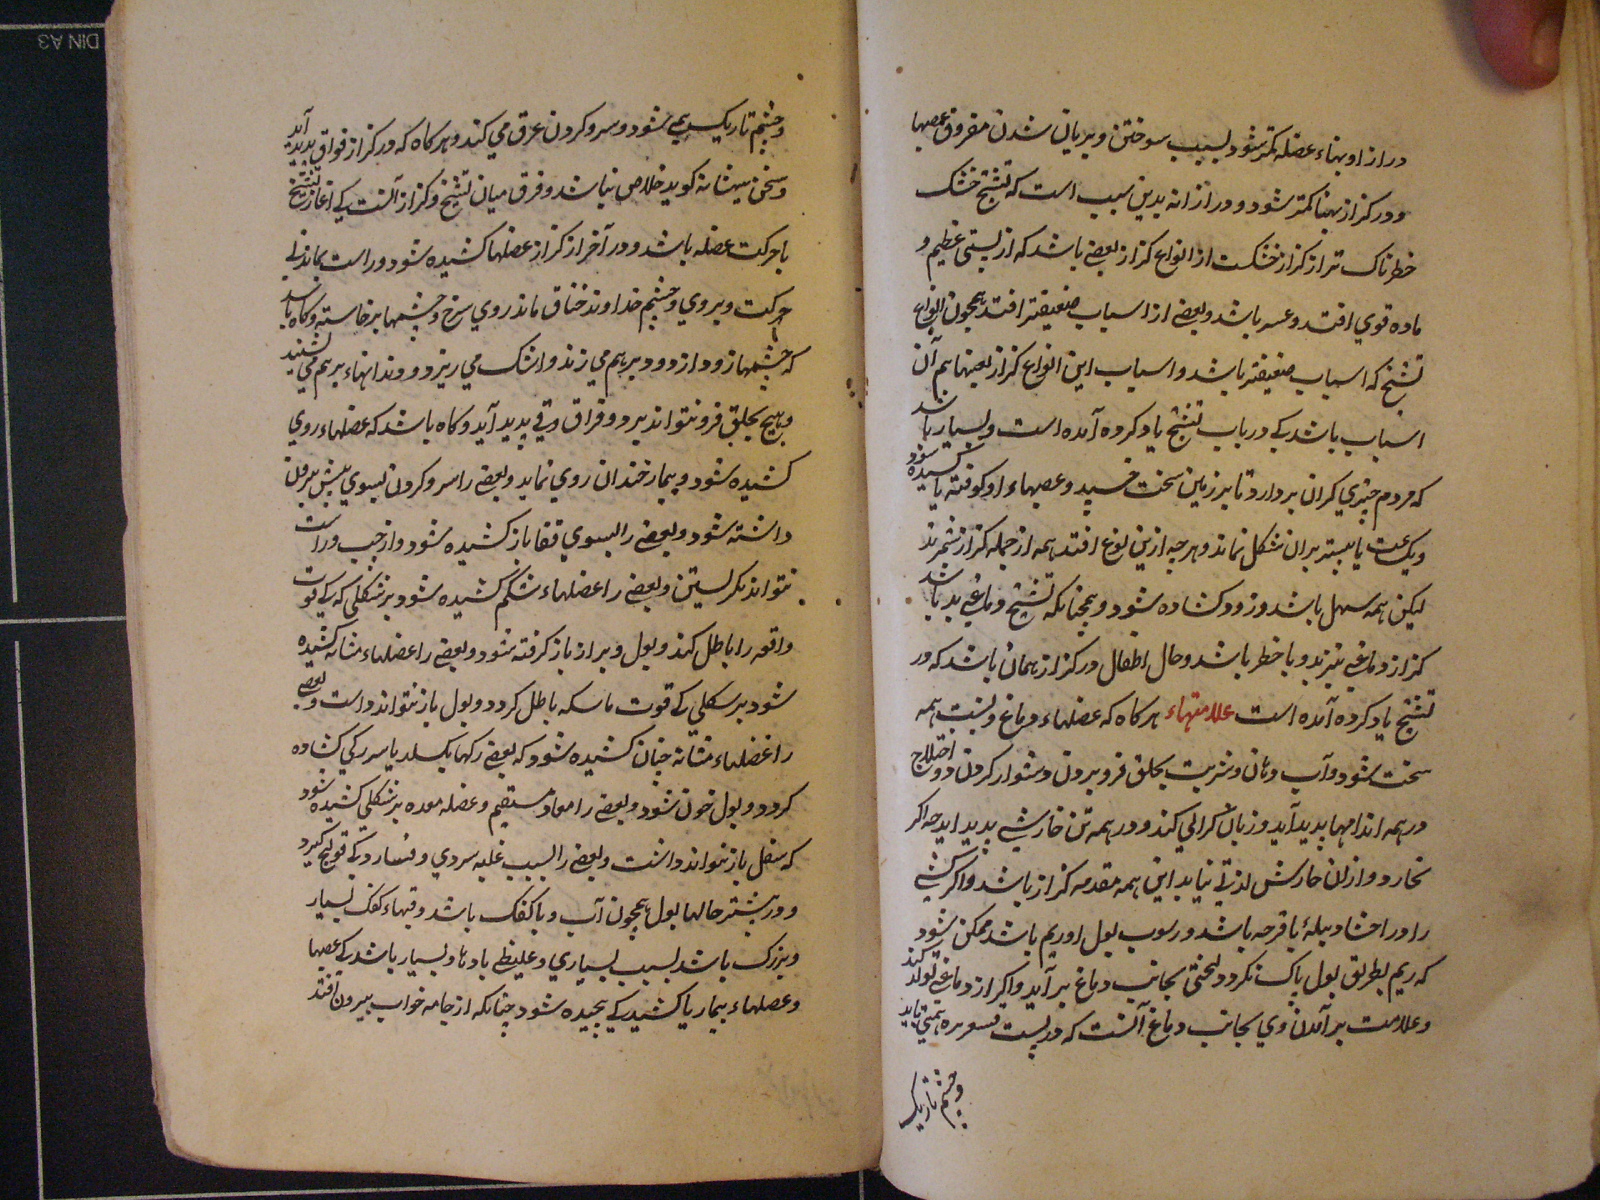 دراز او بهناء عضله کمتر شود بسبب سوختن و بریان شدن مفروق عصبها
و در کزاز بهنا کمتر شود و دراز انه بدین سبب است که تشنج خشک
خطرناک تر از کزاز خشکست از انواع کزاز بعضے باشد که از پستی عظیم و
ماده قوی افتد و عسر باشد و بعضے از اسباب ضعیفتر افتد همچون انواع
تشنج که اسباب ضعیفتر باشد و اسباب این انواع کزاز بعینها هم آن
اسباب باشد که در باب تشنج یاد کرده آمده است و بسیار باشد
که مردم چیزی کران بردارد تا بر زمین سخت خسپد و عصبهاء او کوفته یا کشیده شود
و یکساعت یا بیشتر بران شکل بماند و هرچه ازین نوع افتد همه از جمله کزاز شمرند
لیکن همه سهل باشد و زود کشاده شود و همچنانکه تشنج دماغی بد باشد
کزاز دماغی نیز بد و با خطر باشد و حال اطفال در کزاز همان باشد که در
تشنج یاد کرده آمده است علامتهاء هر کاه که عضلهاء دماغ و پشت همه
سخت شود و آب دهان و شربت بحلق فرو بردن دشوار کردد و اختلاج
در همه اندامها پدید آید و زبان کرانی کند و در همه تن خارشے پدید اید چه اکر
بخارد و ازان خارش لذتے نیابد این همه مقدمه کزاز باشد و اکر کسے
را در احشا دبیلهٔ یا قرحه باشد و رسوب بول او ریم باشد ممکن شود
که ریم بطریق بول پاک نکردد و لختی بجانب دماغ برآید و اکزاز دماغے تولد کند
و علامت برآمدن وی بجانب دماغ آنست که در پست قسعریره همی یابد
و چشم تاریک
و چشم تاریک همی شود و سر و کردن عرق می کند و هر کاه که در کزاز فواق پدید آید
و سخن میشانه کوید خلاص نباشد و فرق میان تشنج و کزاز آنست که اغاز تشنج
با حرکت عضله باشد و در آخر از کزاز عضلها کشیده شود و راست بماند بے
حرکت و بروی و چشم خداوند خناق ماند روی سرخ و چشمها برخاسته و کاه باشد
که چشمها زود از دود برهم می زند و اشک می ریزد و دندانهاء برهم می نشیند
و هیچ بحلق فرو نتواند برد و فراق وقے پدید آید و کاه باشد که عضلهاء روی
کشیده شود و بیمار خندان روی نماید و بعضے را سر و کردن بسوی پیش برون
داشته شود و بعضے را بسوی قفا باز کشیده شود و از چپ و راست
نتواند نکریستن و بعضے را عضلهاء شکم کشیده شود بر شکلی که قوت
دافعه را باطل کند و بول و براز باز کرفته شود و بعضے را عضلهاء مثانه کشیده
شود بر شکلی که قوت ماسکه باطل کردد و بول باز نتواند داشت و بعضے
را عضلهاء مثانه چنان کشیده شود که بعضے رکها بکسلد یا سر رکی کشاده
کردد و بول خون شود و بعضے را معاء مستقیم و عضله معده بر شکلی کشیده شود
که سفل باز نتواند داشت و بعضے را بسبب غلبه سردی و فسار رودکے قولنج کیرد
و در بیشتر حالها بول همچون آب و با کفک باشد و قیهاء کفک بسیار
و بزرک باشد بسبب بسیاری و غلیظے بادها و بسیار باشد که عصبها
و عضلهاء بیمار یا کشیدکے پیچیده شود چنانکه از جامه خواب بیرون افتد